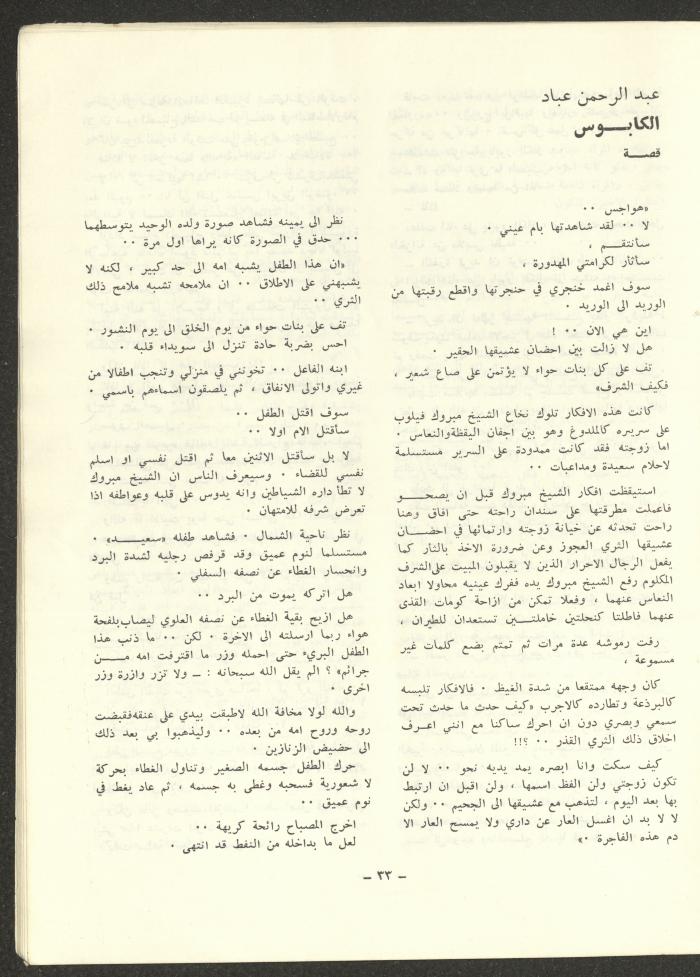 عبد الرحمن عباد
الكابـــوس
قصـــة
«هواجس ٠٠
لا ٠٠ لقد شاهدتها بام عيني ٠
سأنتقـم ،
سأثأر لكرامتي المهدورة ،
سوف اغمد خنجري في حنجرتها واقطع رقبتها من
الوريد الى الوريد ٠
اين هي الان ٠٠ !
هل لا زالت بين احضان عشيقها الحقير ٠
تف على كل بنات حواء لا يؤتمن على صاع شعير ،
فكيف الشرف»
كانت هذه الافكار تلوك نخاع الشيخ مبروك فيلوب
على سريره كالملدوغ وهو بين اجفان اليقظةوالنعاس ٠
اما زوجته فقد كانت ممدودة على السرير مستسلمة
لاحلام سعيدة ومداعبات ٠٠
استيقظت افكار الشيخ مبروك قبل ان يصحــو
فاعملت مطرقتها على سندان راحته حتى افاق وهنا
راحت تحدثه عن خيانة زوجته وارتمائها في احضــان
عشيقها الثري العجوز وعن ضرورة الاخذ بالثار كما
يفعل الرجال الاحرار الذين لا يقبلون المبيت علىالشرف
المكلوم رفع الشيخ مبروك يده ففرك عينيه محاولا ابعاد
النعاس عنهما ، وفعلا تمكن من ازاحة كومات القذى
عنهما فاطلتا كنحلتين خاملتــين تستعدان للطيران ،
رفت رموشه عدة مرات ثم تمتم بضع كلمات غير
مسموعة ،
كان وجهه ممتقعا من شدة الغيظ ٠ فالافكار تلبسه
كالبرذعة وتطارده كالاجرب «كيف حدث ما حدث تحت
سمعي وبصري دون ان احرك ساكنا مع انني اعـرف
اخلاق ذلك الثري القذر ٠٠ ؟!!
كيف سكت وانا ابصره يمد يديه نحو ٠٠ لا لن
تكون زوجتي ولن الفظ اسمها ، ولن اقبل ان ارتبط
بها بعد اليوم ، لتذهب مع عشيقها الى الجحيم ٠٠ ولكن
لا لا بد ان اغسل العار عن داري ولا يمسح العار الا
دم هذه الفاجرة ٠»
نظر الى يمينه فشاهد صورة ولده الوحيد يتوسطهما
٠٠٠ حدق في الصورة كانه يراها اول مرة ٠٠
«ان هذا الطفل يشبه امه الى حد كبير ، لكنه لا
يشبهني على الاطلاق ٠٠ ان ملامحه تشبه ملامح ذلك
الثري ٠٠
تف على بنات حواء من يوم الخلق الى يوم النشور ٠
احس بضربة حادة تنزل الى سويداء قلبه ٠
ابنه الفاعل ٠٠ تخونني في منزلي وتنجب اطفالا من
غيري واتولى الانفاق ، ثم يلصقون اسماءهم باسمي ٠
سوف اقتل الطفل ٠٠
سأقتل الام اولا ٠٠
لا بل سأقتل الاثنين معا ثم اقتل نفسي او اسلم
نفسي للقضاء ٠ وسيعرف الناس ان الشيخ مبروك
لا تطأ داره الشياطين وانه يدوس على قلبه وعواطفه اذا
تعرض شرفه للامتهان ٠
نظر ناحية الشمال ٠ فشاهد طفله «سعيــــد» ٠
مستسلما لنوم عميق وقد قرفص رجليه لشدة البرد
وانحسار الغطاء عن نصفه السفلي ٠
هل اتركه يموت من البرد ٠٠
هل ازيح بقية الغطاء عن نصفه العلوي ليصاب‌بلفحة
هواء ربما ارسلته الى الاخرة ٠ لكن ٠٠ ما ذنب هذا
الطفل البريء حتى احمله وزر ما اقترفت امه مـــن
جرائم» ؟ الم يقل الله سبحانه : ــ ولا تزر وازرة وزر
اخرى ٠
والله لولا مخافة الله لاطبقت بيدي على عنقهفقبضت
روحه وروح امه من بعده ٠٠ وليذهبوا بي بعد ذلك
الى حضيض الزنازين ٠
حرك الطفل جسمه الصغير وتناول الغطاء بحركة
لا شعورية فسحبه وغطى به جسمه ، ثم عاد يغط في
نوم عميق ٠٠
اخرج المصباح رائحة كريهة ٠٠
لعل ما بداخله من النفط قد انتهى ٠
ــ ٣٣ ــ